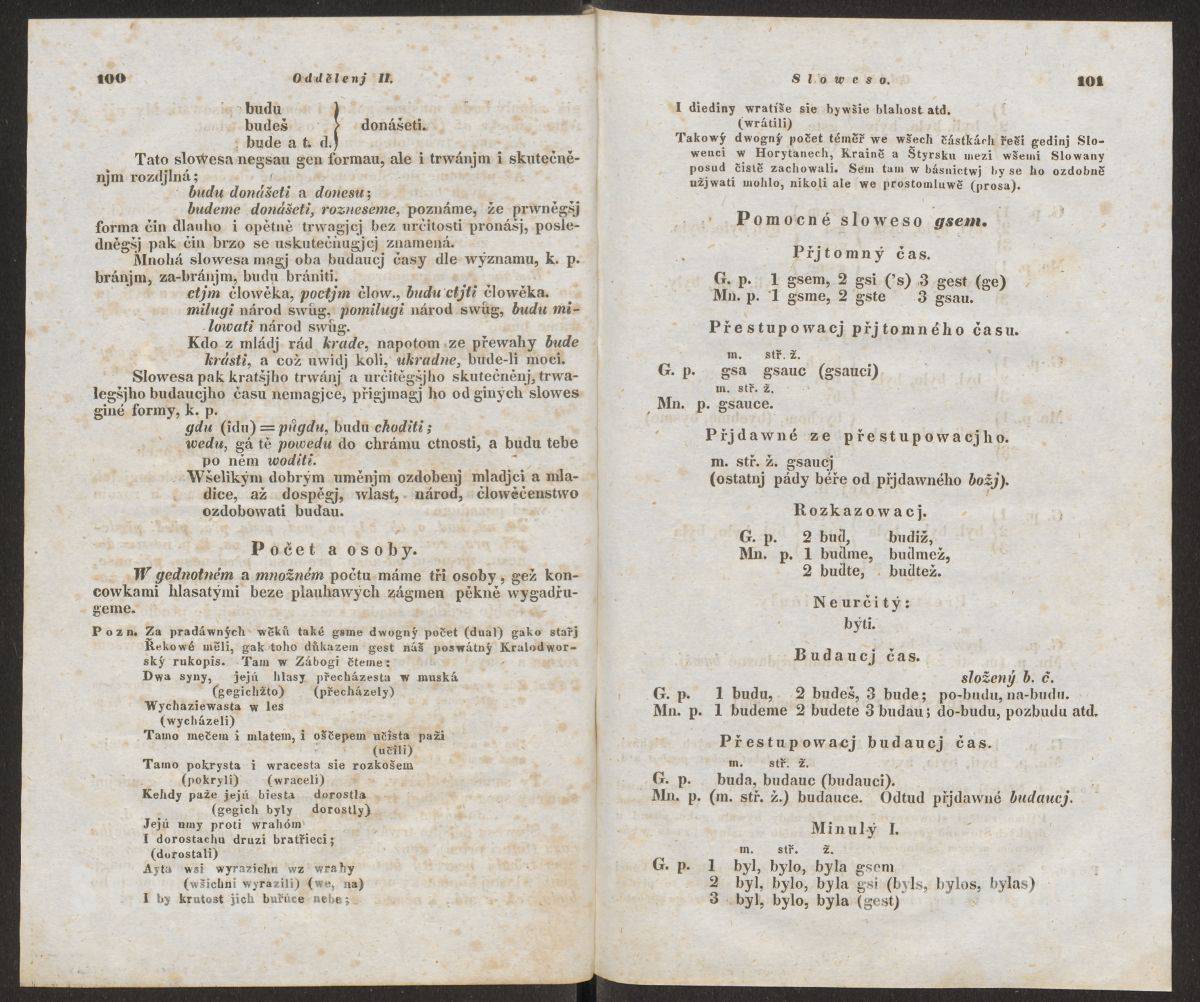 100
Oddělenj II.
budu
budeš } donášeti.
bude a t. d.
Tato slowesa negsau gen formau, ale i trwánjm i skutečně-
njm rozdjlná;
budu donášeti a donesu;
budeme donášeti, rozneseme, poznáme, že prwněgšj
forma čin dlauho i opětně trwagjcj bez určitosti pronášj, posle-
dněgšj pak čin brzo se uskutečňugjcj znamená.
Mnohá slowesa magj oba budaucj časy dle wýznamu, k. p.
bránjm, za-bránjm, budu brániti.
ctjm člowěka, poctjm člow., budu ctjti člowěka.
milugi národ swůg, pomilugi národ swůg, budu mi-
lowati národ swůg.
Kdo z mládj rád krade, napotom ze přewahy bude
krásti, a což uwidj koli, ukradne, bude-li moci.
Slowesa pak kratšjho trwánj a určitěgšjho skutečněnj, trwa-
legšjho budaucjho času nemagjce, přigjmagj ho od giných slowes
giné formy, k. p.
gdu (idu) = půgdu, budu choditi;
wedu, gá tě powedu do chrámu ctnosti, a budu tebe
po něm woditi.
Wšelikým dobrým uměnjm ozdobenj mladjci a mla-
dice, až dospěgj, wlast, národ, člowěčenstwo
ozdobowati budau.
Počet a osoby.
W gednotném a množném počtu máme tři osoby, gež kon-
cowkami hlasatými beze plauhawých zágmen pěkně wygadřu-
geme.
Pozn. Za pradáwných wěků také gsme dwogný počet (dual) gako stařj
Řekowé měli, gak toho důkazem gest náš poswátný Kralodwor-
ský rukopis. Tam w Zábogi čteme:
Dwa syny, jejú hlasy přecházesta w muská
(gegichžto) (přecházely)
Wychaziewasta w les
(wycházeli)
Tamo mečem i mlatem, i oščepem učista paži
(učili)
Tamo pokrysta i wracesta sie rozkošem
(pokryli) (wraceli)
Kehdy paže jejú biesta dorostla
(gegich byly dorostly)
Jejú umy proti wrahóm
I dorostachu druzí bratřieci;
(dorostali)
Ayta wsi wyrazichu wz wrahy
(wšichni wyrazili) (we, na)
I by krutost jich buřúce nebe;
Sloweso.
101
I diediny wratíše sie bywšie blahost atd.
(wrátili)
Takowý dwogný počet téměř we wšech částkách řeči gedinj Slo-
wenci w Horytanech, Kraině a Štyrsku mezi wšemi Slowany
posud čistě zachowali. Sem tam w básnictwj by se ho ozdobně
užjwati mohlo, nikoli ale we prostomluwě (prosa).
Pomocné sloweso gsem.
Přjtomný čas.
G. p. 1 gsem, 2 gsi (’s) 3 gest (ge)
Mn. p. 1 gsme, 2 gste 3 gsau.
Přestupowacj přjtomného času.
m. stř. ž.
G. p. gsa gsauc (gsauci)
m. stř. ž.
Mn. p. gsauce.
Přjdawné ze přestupowacjho.
m. stř. ž. gsaucj
(ostatnj pády béře od přjdawného božj).
Rozkazowacj.
G. p. 2 buď, budiž,
Mn. p. 1 buďme, buďmež,
2 buďte, buďtež.
Neurčitý:
býti.
Budaucj čas.
složený b. č.
G. p. 1 budu, 2 budeš, 3 bude; po-budu, na-budu.
Mn. p. 1 budeme 2 budete 3 budau; do-budu, pozbudu atd.
Přestupowacj budaucj čas.
m. stř. ž.
G. p. buda, budauc (budauci).
Mn. p. (m. stř. ž.) budauce. Odtud přjdawné budaucj.
Minulý I.
m. stř. ž.
G. p. 1 byl, bylo, byla gsem
2 byl, bylo, byla gsi (byls, bylos, bylas)
3 byl, bylo, byla (gest)